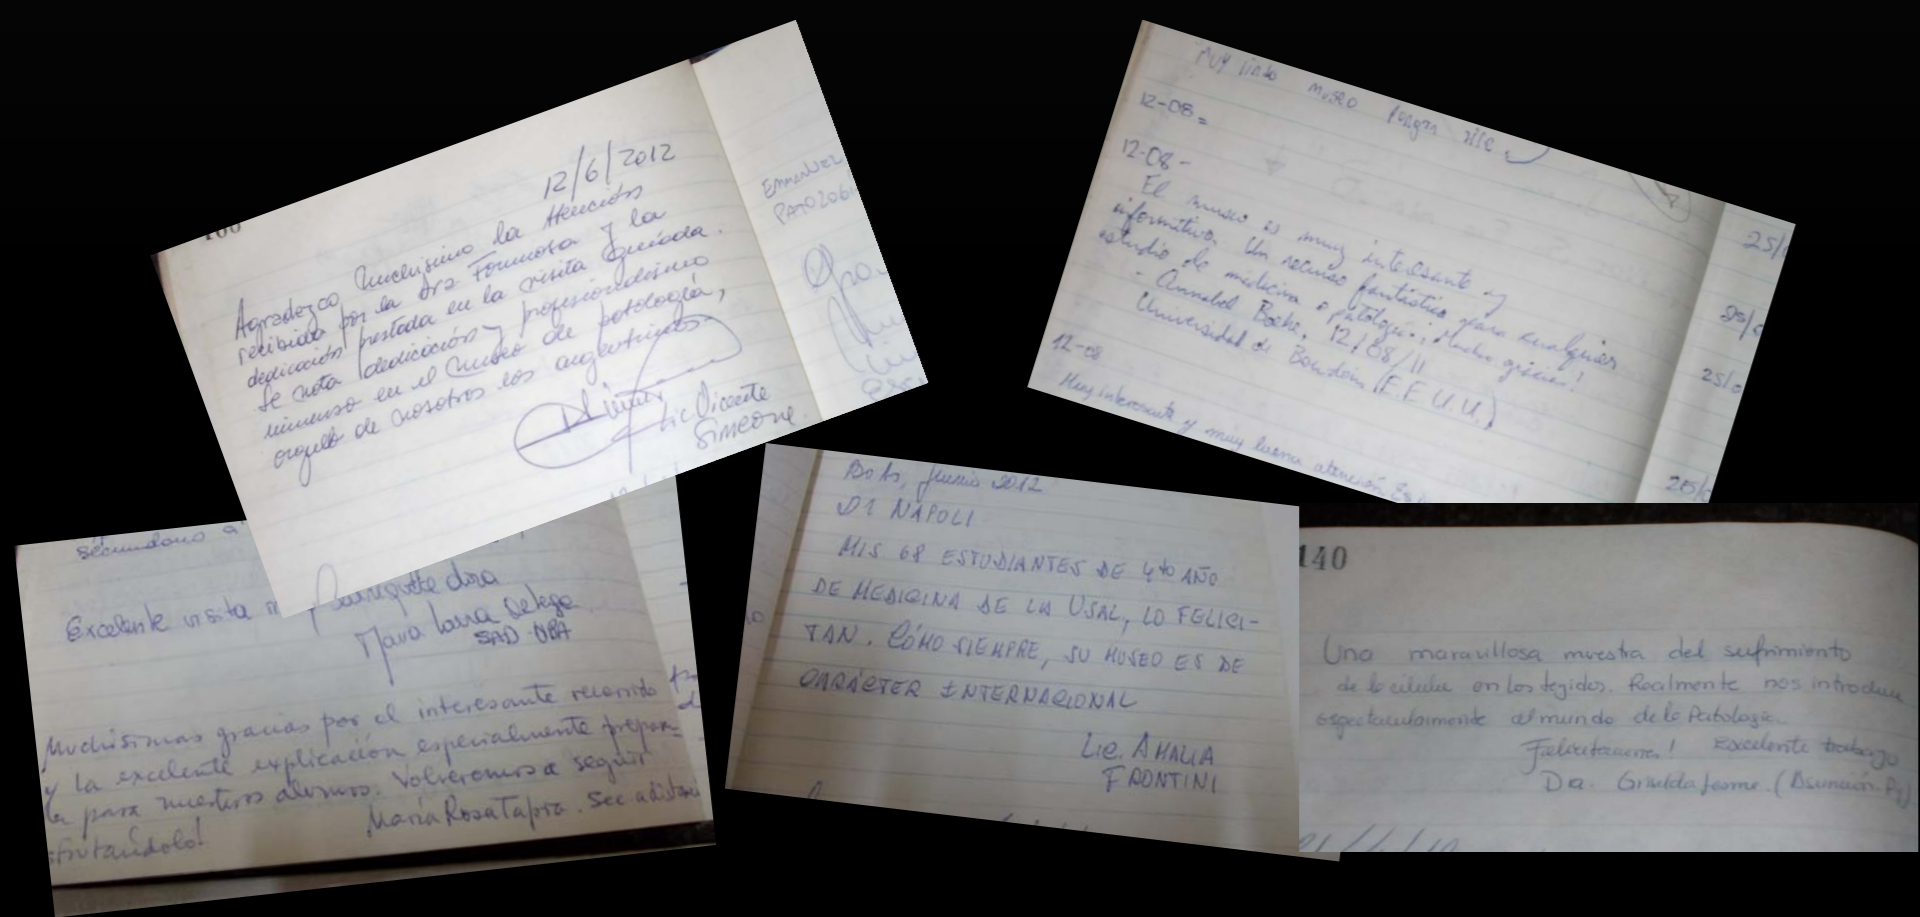 12/6/2012
Agradezco muchisimo la Atención
recibida por la Dra. Formosa y la
dedicación prestada en la visita guiada.
Se nota dedicación y profesionalismo
inmenso en el museo de patología,
orgullo de nosotros los argentinos.
Lic Vicente
Simeone
Emmanuel
Muy lindo museo
12-08
12-08-
El museo es muy interesante y
informitivo. Un recurso fantástico para cualquier
estudio de medicina o patología; Mucho gracias!
- Annabel Boeke, 12/08/11
Universidad de Bowdoin (E.E.U.U.)
12-08
Muy interesante y muy buena atención
25/0
25/0
25/0
25/0
secundario a
Excelente visita
María Laura
SAD-UBA
Muchísimas gracias por el interesante recorrido
y la excelente explicación especialmente prepara-
da para nuestros alumnos. Volveremos a seguir
sfrutándolo!
María Rosa Tapia. Sec. a distan
BsAs, Junio 2012
DI NAPOLI
MIS 68 ESTUDIANTES DE 4to AÑO
DE MEDICINA DE LA USAL, LO FELICI-
TAN. CÓMO SIEMPRE, SU MUSEO ES DE
CARÁCTER INTERNACIONAL
Lic. AMALIA
FRONTINI
140
Una maravillosa muestra del sufrimiento
de la célula en los tejidos. Realmente nos introduce
espectacularmente al mundo de la Patología.
Felicitaciones! Excelente trabajo
Dra. Griselda (Asunción. Py)